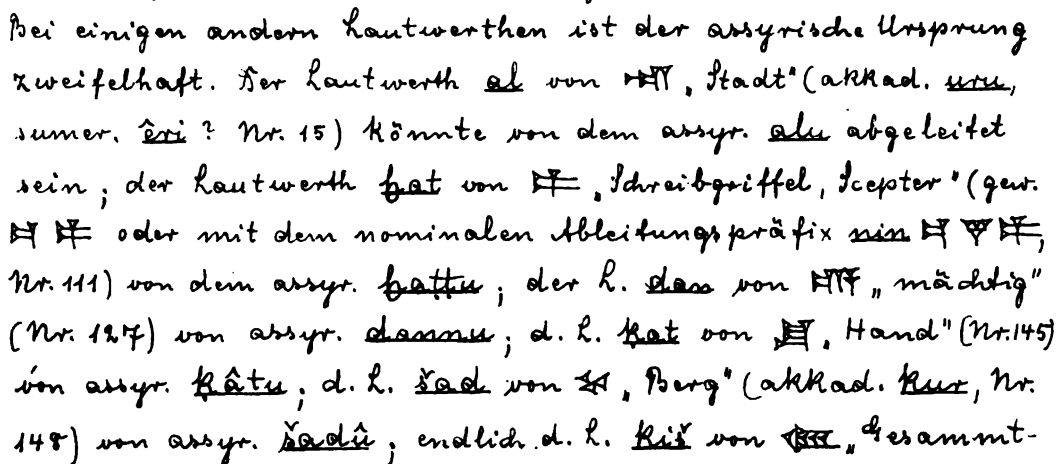 Bei einigen andern Lautwerthen ist der assyrische Ursprung
zweifelhaft. Der Lautwerth al von 𒌷 „Stadt“ (akkad. uru,
sumer. êri ? Nr. 15) könnte von dem assyr. alu abgeleitet
sein; der Lautwerth ḫat von 𒉺 „Schreibgriffel, Scepter“ (gew.
oder mit dem nominalen Ableitungspräfix nin
Nr. 111) von dem assyr. ḫaṭṭu; der L. dan von 𒆗 „mächtig“
(Nr. 127) von assyr. dannu; d. L. ḳat von 𒋗 „Hand“ (Nr. 145)
von assyr. ḳâtu; d. L. šad von 𒆳 „Berg“ (akkad. kur, Nr.
148) von assyr. šadû; endlich d. L. kiš von 𒆧 „Gesammt-